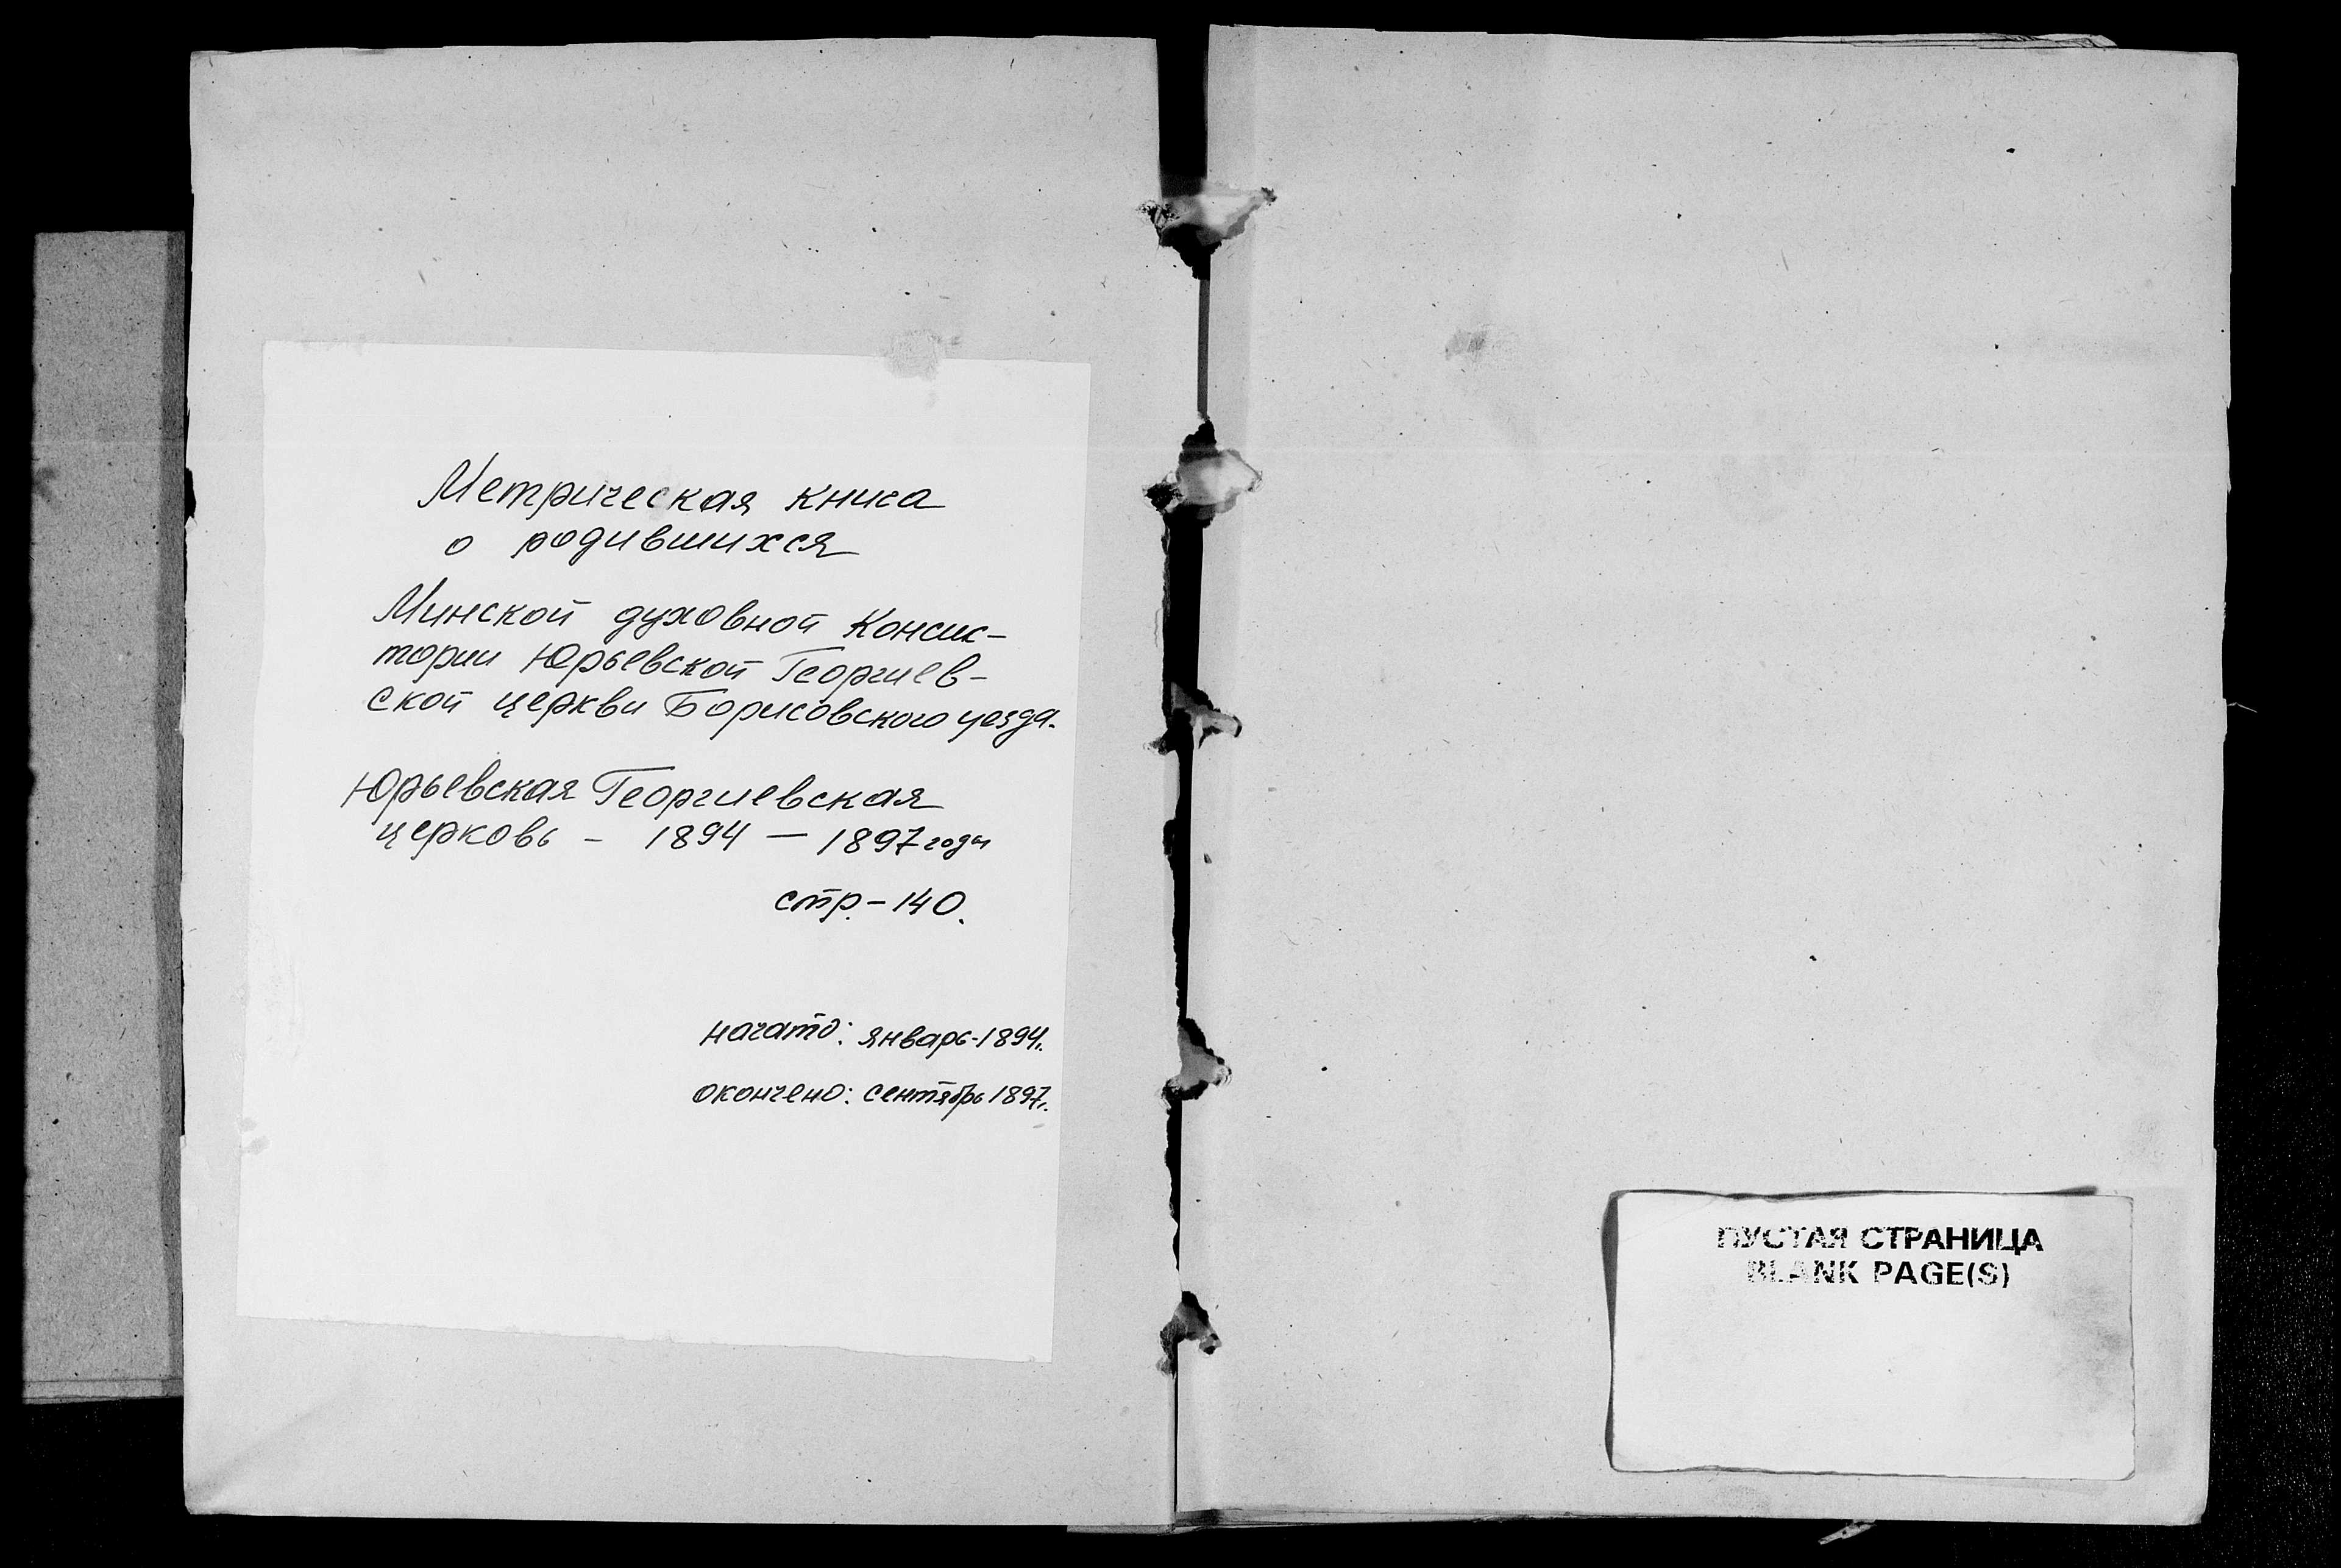 Метрическая книга
о родившихся
Минской духовной Консис-
тории Юрьевской Георгиев-
ской церкви Борисовского уезда.
Юрьевская Георгиевская
церковь - 1894 — 1897 годы
стр. - 140.
начато: январь - 1894г.
окончено: сентябрь 1897г.
ПУСТАЯ СТРАНИЦА
BLANK PAGE(S)